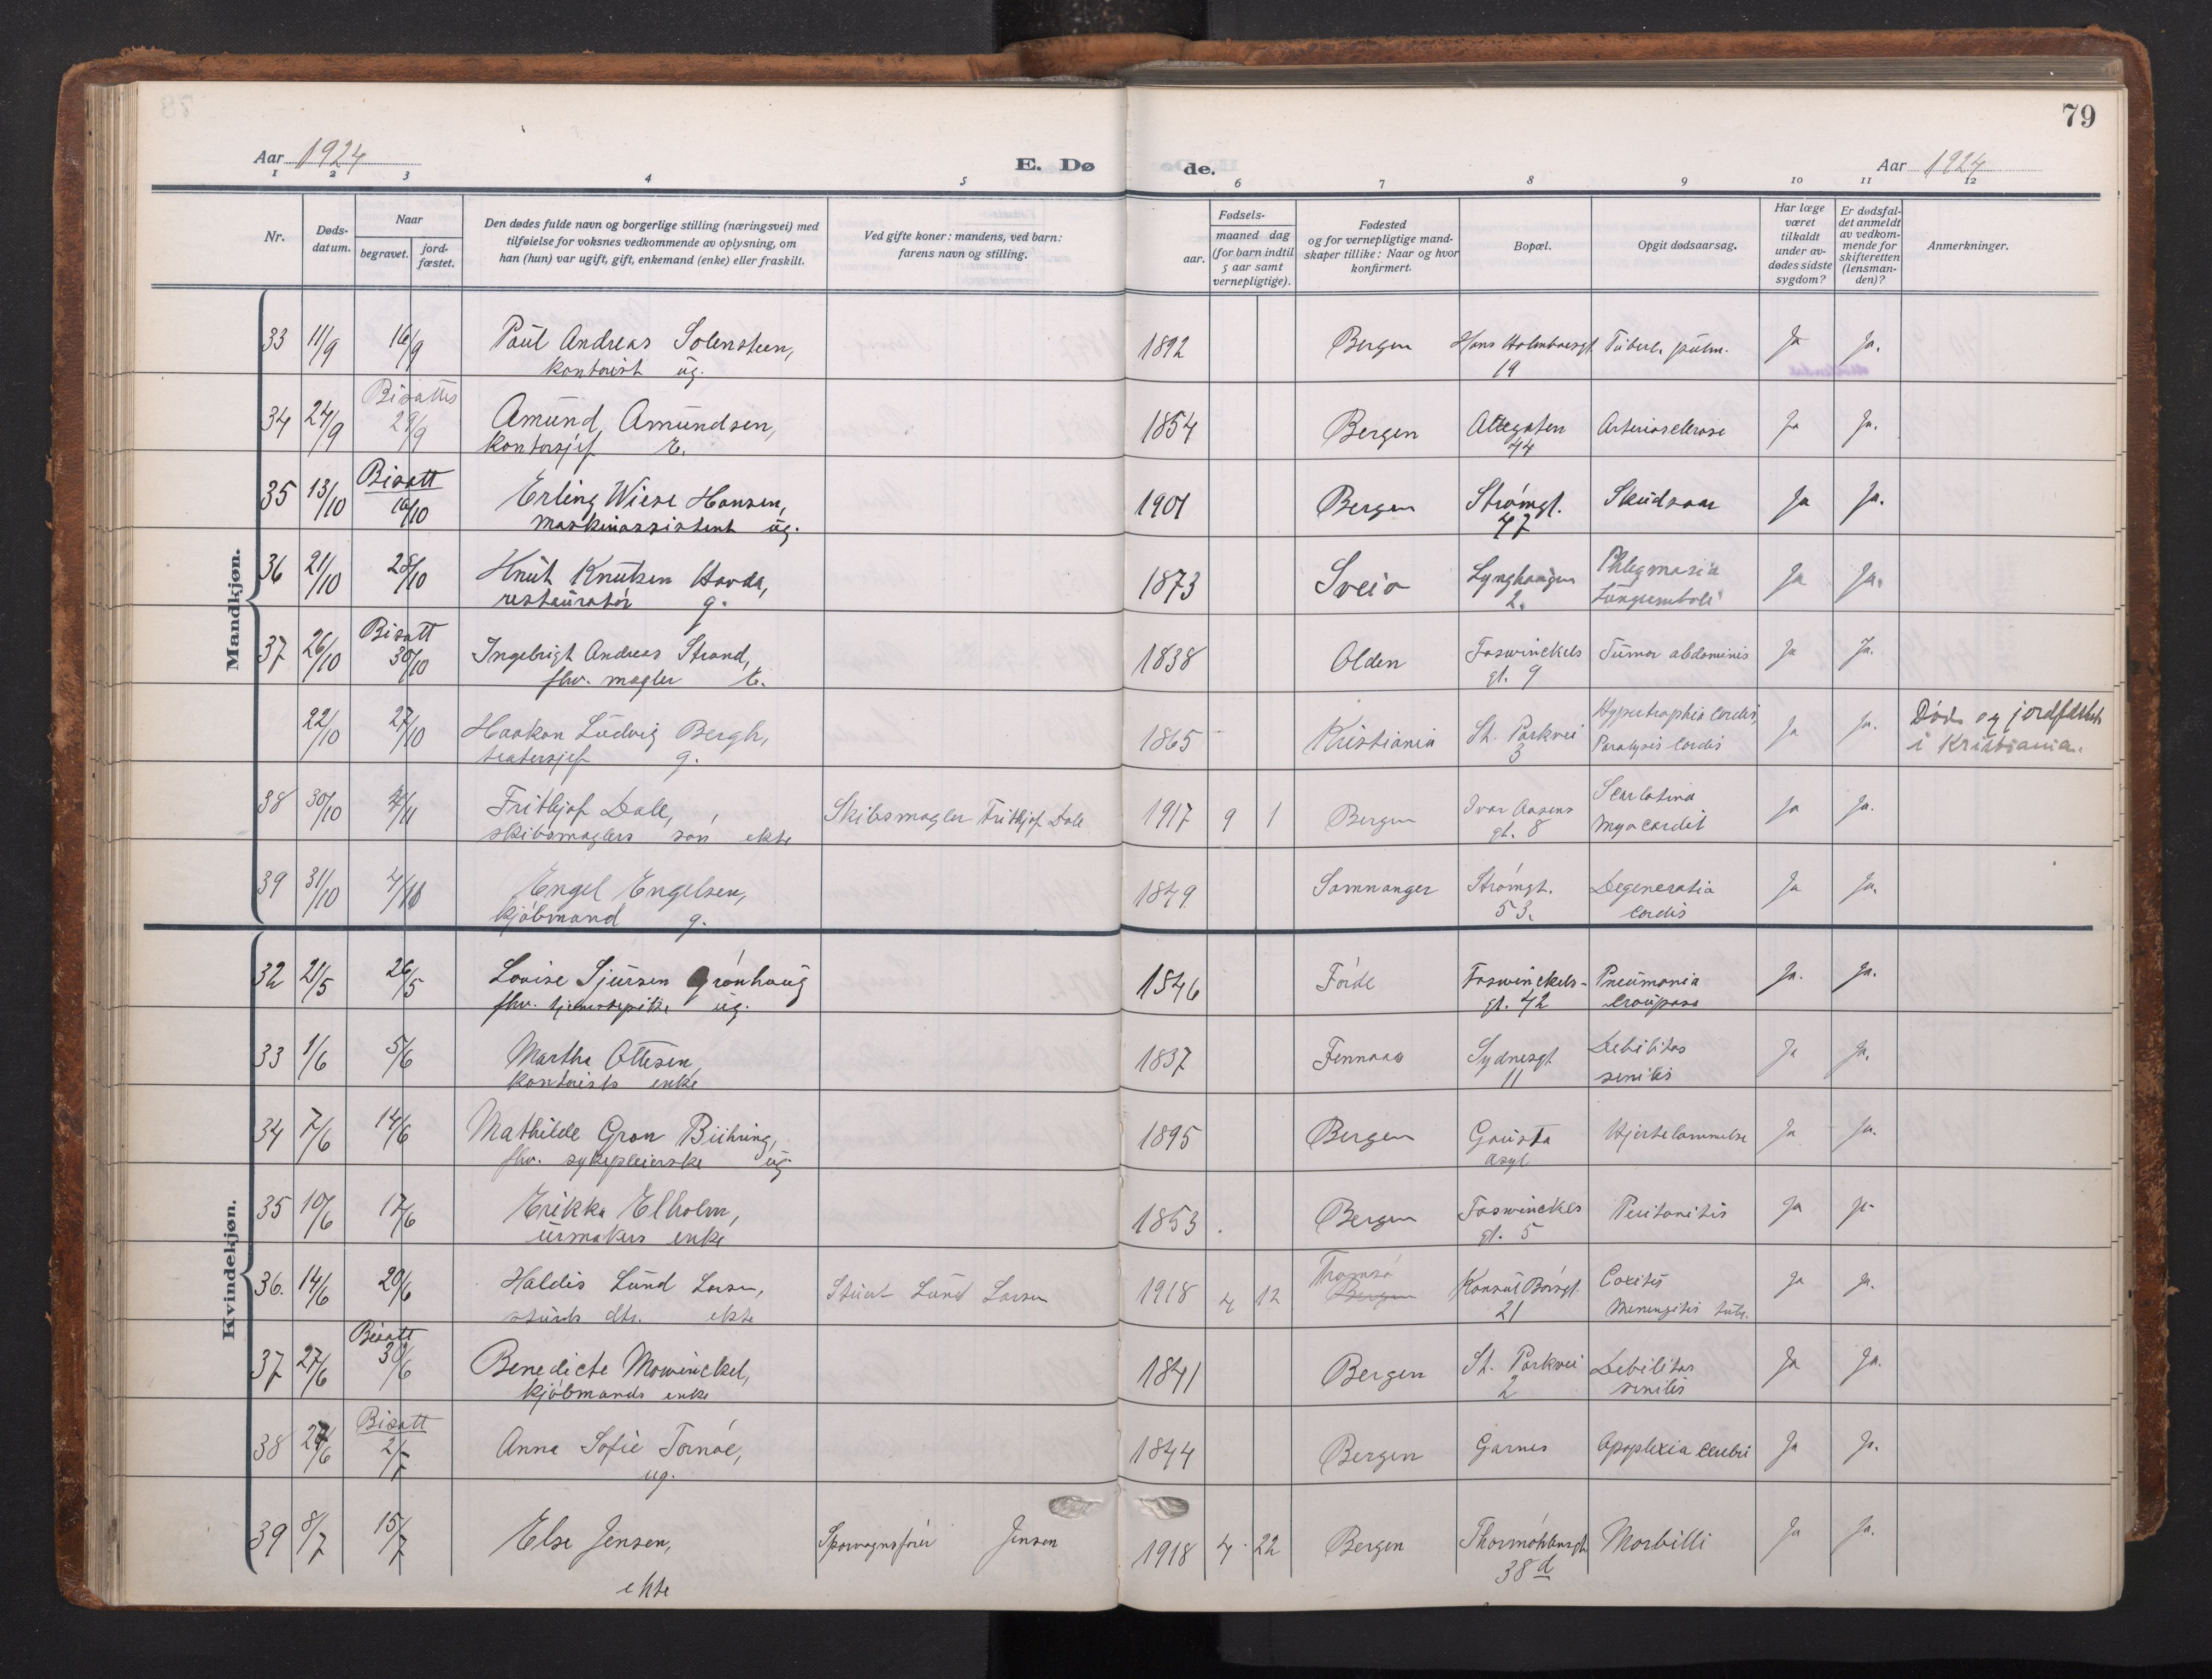 79
Aar 1924
E. Døde.
Aar 1924
1 2 3 4 5 6 7 8 9 10 11 12
Nr.
Døds-
datum.
Naar
begravet.
jord-
fæstet.
Den dødes fulde navn og borgerlige stilling (næringsvei) med
tilføielse for voksnes vedkommende av oplysning, om
han (hun) var ugift, gift, enkemand (enke) eller fraskilt.
Ved gifte koner: mandens, ved barn:
farens navn og stilling.
Fødsels-
aar.
maaned dag
(for barn indtil
5 aar samt
vernepligtige).
Fødested
og for vernepligtige mand-
skaper tillike: Naar og hvor
konfirmert.
Bopæl.
Opgit dødsaarsag.
Har læge
været
tilkaldt
under av-
dødes sidste
sygdom?
Er dødsfal-
det anmeldt
av vedkom-
mende for
skifteretten
(lensman-
den)?
Anmerkninger.
Mandkjøn.
33 11/9 16/9 Paul Andreas Solensteen, 1892 Bergen Hans Holmboesgt Tuberk. pulm. Ja Ja.
kontorist ug. 19
Bisattes
34 24/9 29/9 Amund Amundsen, 1854 Bergen Allegaten Arteriosclerose Ja Ja.
kontorsjef E. 44
Bisatt
35 13/10 16/10 Erling Wiese Hansen, 1901 Bergen Strømgt. Skudsaar Ja Ja.
maskinassistent ug. 47
36 21/10 28/10 Knut Knutsen Hovda, 1873 Sveio Lynghaugen Phlegmasia Ja Ja.
restauratør g. 2. Lungeemboli
Bisatt
37 26/10 30/10 Ingebrigt Andreas Strand, 1838 Olden Foswinckels Tumor abdominis Ja Ja.
fhv. mægler E. gt. 9
22/10 27/10 Haakon Ludvig Bergh, 1865 Kristiania St. Parkvei Hypertrophia Cordis, Ja Ja. Død og jordfæstet
teatersjef g. 3 Paralysis Cordis i Kristiania.
38 30/10 4/11 Frithjof Dall, Skibsmægler Frithjof Dall 1917 9 1 Bergen Ivar Aasens Scarlatina Ja Ja.
skibsmæglers søn ekte gt. 8 Myocardit
39 31/10 4/11 Engel Engelsen, 1849 Samnanger Strømgt. Degeneratio Ja Ja.
kjøbmand g. 53. Cordis
Kvindekjøn.
32 21/5 26/5 Lovise Sjursen Grønhaug 1846 Førde Foswinckels- Pneumonia Ja. Ja.
fhv. tjenestepike ug. gt. 42 Crouposa
33 1/6 5/6 Martha Ottesen, 1837 Fennaas Sydnesgt Debilitas Ja Ja.
kontorists enke 11 senilis
34 7/6 14/6 Mathilde Gran Bühring, 1895 Bergen Gausta Hjertelammelse Ja Ja.
fhv. sykepleierske ug. asyl
35 10/6 17/6 Erikka Elholm, 1853 Bergen Foswinckels Peritonitis Ja Ja.
urmakers enke gt. 5
36. 14/6 20/6 Haldis Lund Larsen, Stuert Lund Larsen 1918 4 12 Tromsø Bergen Konsul Børsgt. Coxitis Ja Ja.
stuerts dtr. ekte 21 Meningitis tub.
Bisatt
37 27/6 30/6 Benedicte Mowinckel, 1841 Bergen St. Parkvei Debilitas Ja Ja.
kjøbmands enke 2 senilis
Bisatt
38 27/6 2/7 Anna Sofie Tornøe, 1844 Bergen Garnes Apoplexia Cerebri Ja Ja.
ug.
39 8/7 15/7 Else Jensen, Sporvognsfører Jensen 1918 4 22 Bergen Thormøhlensgt Morbilli Ja Ja.
ekte 38 d